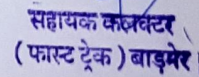 सहायक कलक्टर
( फास्ट ट्रेक ) बाड़मेर